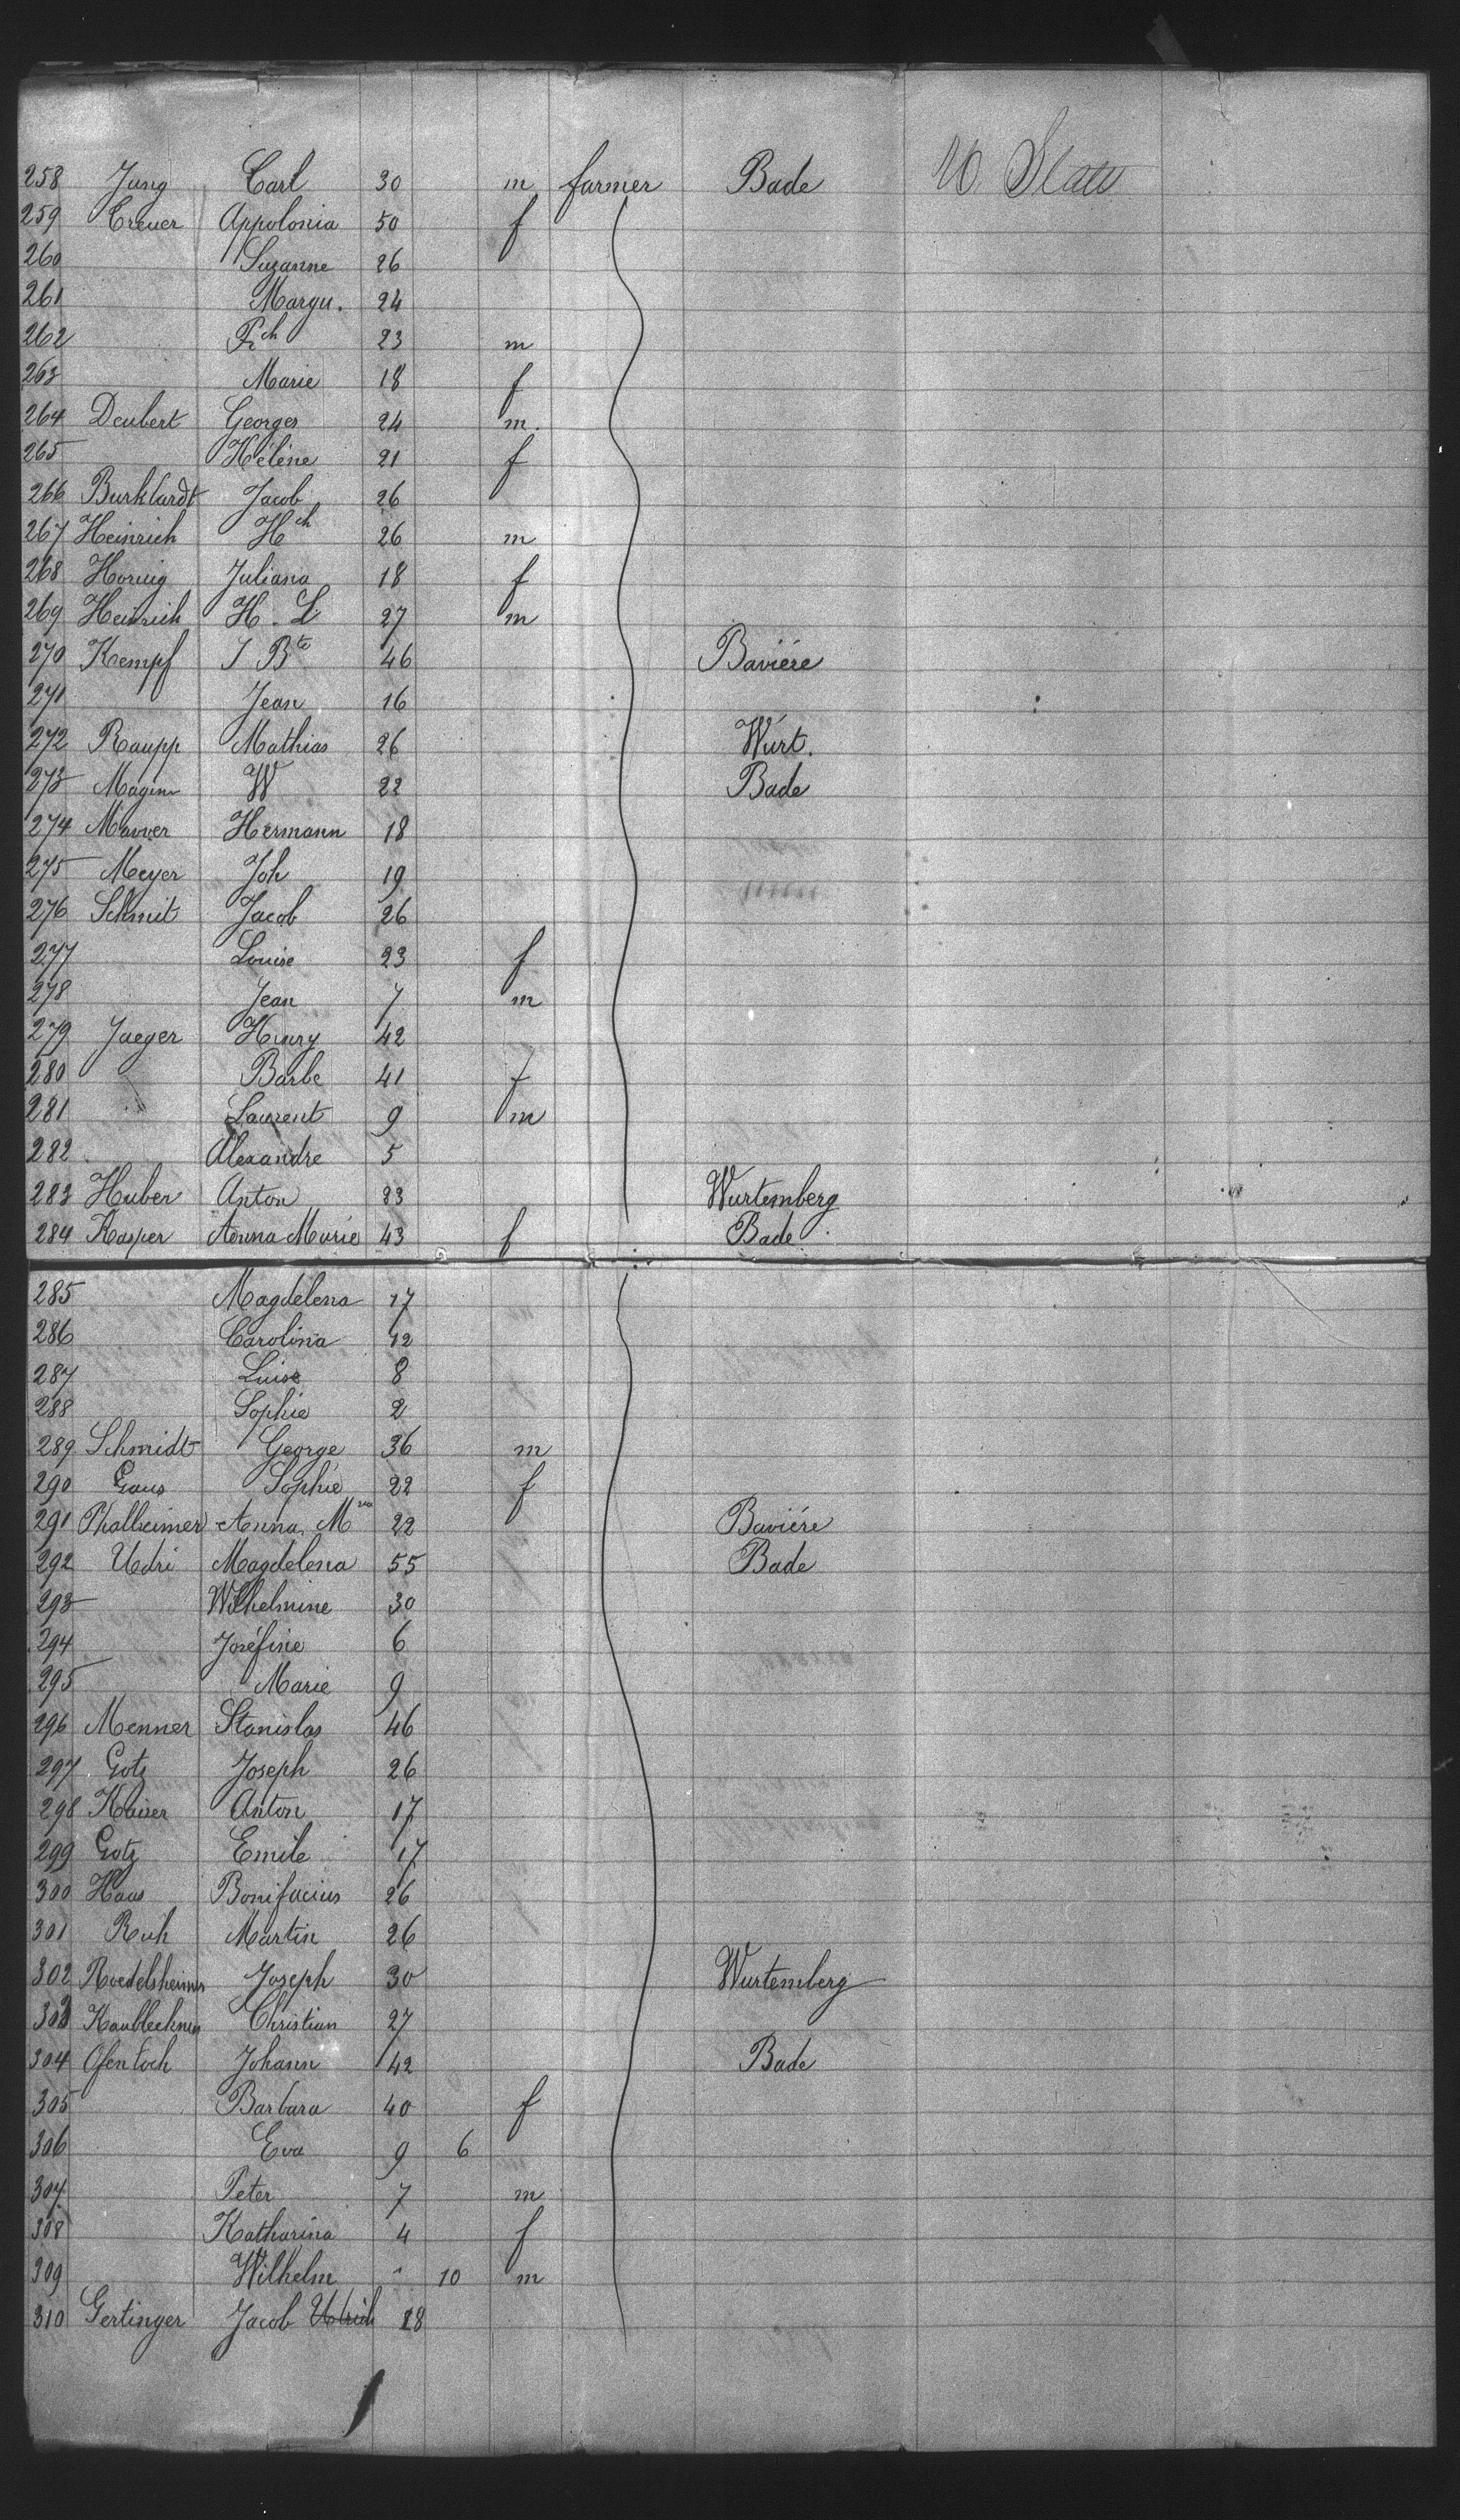 258 Jung Carl 30 m farmer Bade U. State
259 Creuer Appolonia 50 f
260 Suzanne 26
261 Margu. 24
262 Fch 23 m
263 Marie 18 f
264 Deubert Georges 24 m.
265 Hélène 21 f
266 Burkhardt Jacob 26
267 Heinrich Hch 26 m
268 Hornig Juliana 18 f
269 Heinrich H. L 27 m
270 Kempf J Bte 46 Bavière
271 Jean 16
272 Raupp Mathias 26 Würt.
273 Magin W 22 Bade
274 Hermann 18
275 Meyer Joh 19
276 Schmit Jacob 26
277 Louise 23 f
278 Jean 7 m
279 Jaeger Henry 42
280 Barbe 41 f
281 Laurent 9 m
282 Alexandre 5
283 Huber Anton 23 Wurtemberg
284 Kasper Anna Marie 43 f Bade
285 Magdelena 17
286 Carolina 12
287 Luise 8
288 Sophie 2
289 Schmidt George 36 m
290 Gaus Sophie 22 f
291 Phalheimer Anna M 22 Bavière
292 Udri Magdelena 55 Bade
293 Wilhelmine 30
294 Joséfine 6
295 Marie 9
296 Menner Stanislas 46
297 Gotz Joseph 26
298 Kaiser Anton 17
299 Gotz Emile 17
300 Haas Bonifacius 26
301 Ruh Martin 26
302 Roedelsheimer Joseph 30 Wurtemberg
303 Christian 27
304 Ofenloch Johann 42 Bade
305 Barbara 40 f
306 Eva 9 6
307 Peter 7 m
308 Katharina 4 f
309 Wilhelm " 10 m
310 Gertinger Jacob Ulrich 18